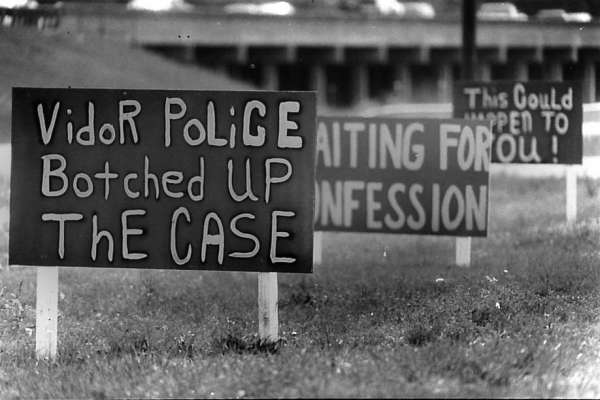 VidoR POLiCE
Botched UP
ThE CASE
AITING FOR
ONFESSION
This Could
HAPPEN TO
YOU!